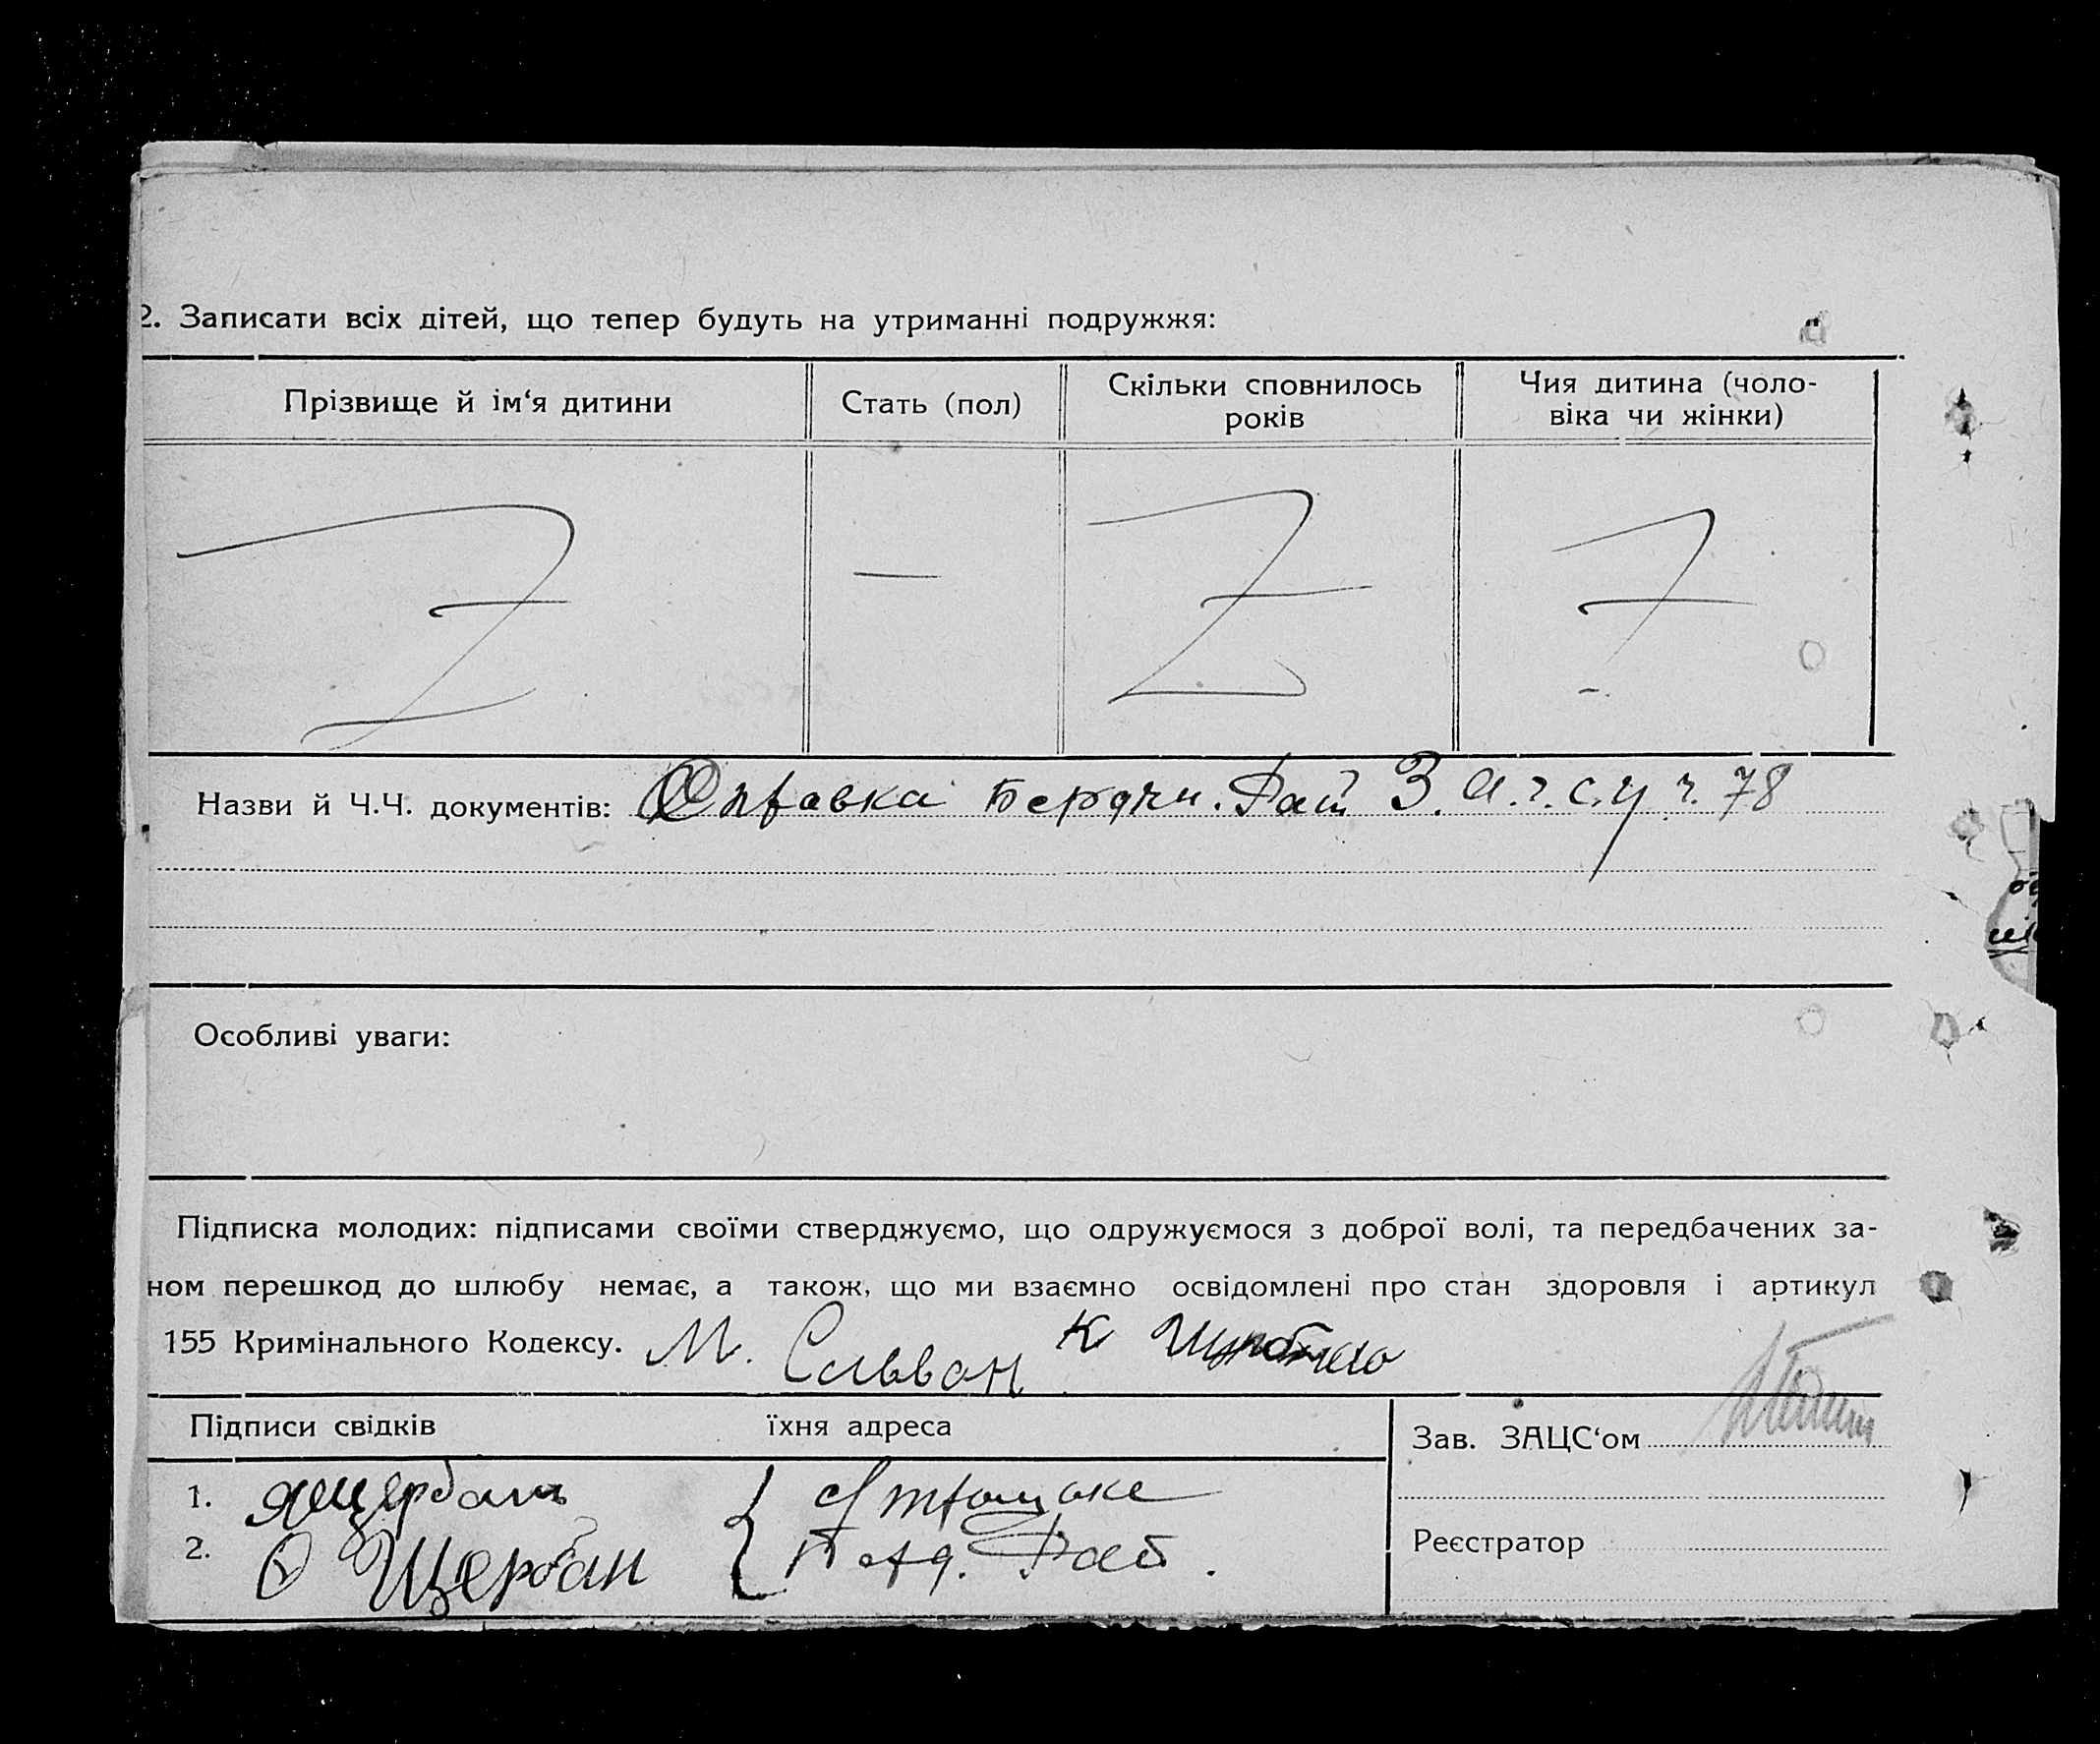 2. Записати всіх дітей, що тепер будуть на утриманні подружжя:
Прізвище й ім‘я дитини
Стать (пол)
Скільки сповнилось
років
Чия дитина (чоло-
віка чи жінки)
—
Назви й Ч.Ч. документів: Справка Бердич. Рай З.а.г.с.у ч. 78
Особливі уваги:
Підписка молодих: підписами своїми стверджуємо, що одружуємося з доброї волі, та передбачених за-
ном перешкод до шлюбу немає, а також, що ми взаємно освідомлені про стан здоровля і артикул
155 Кримінального Кодексу. М. Сильван К
Підписи свідків їхня адреса
Зав. ЗАЦС‘ом
1. Щербань
2. О Щербан
Берд. Рай.
Реєстратор